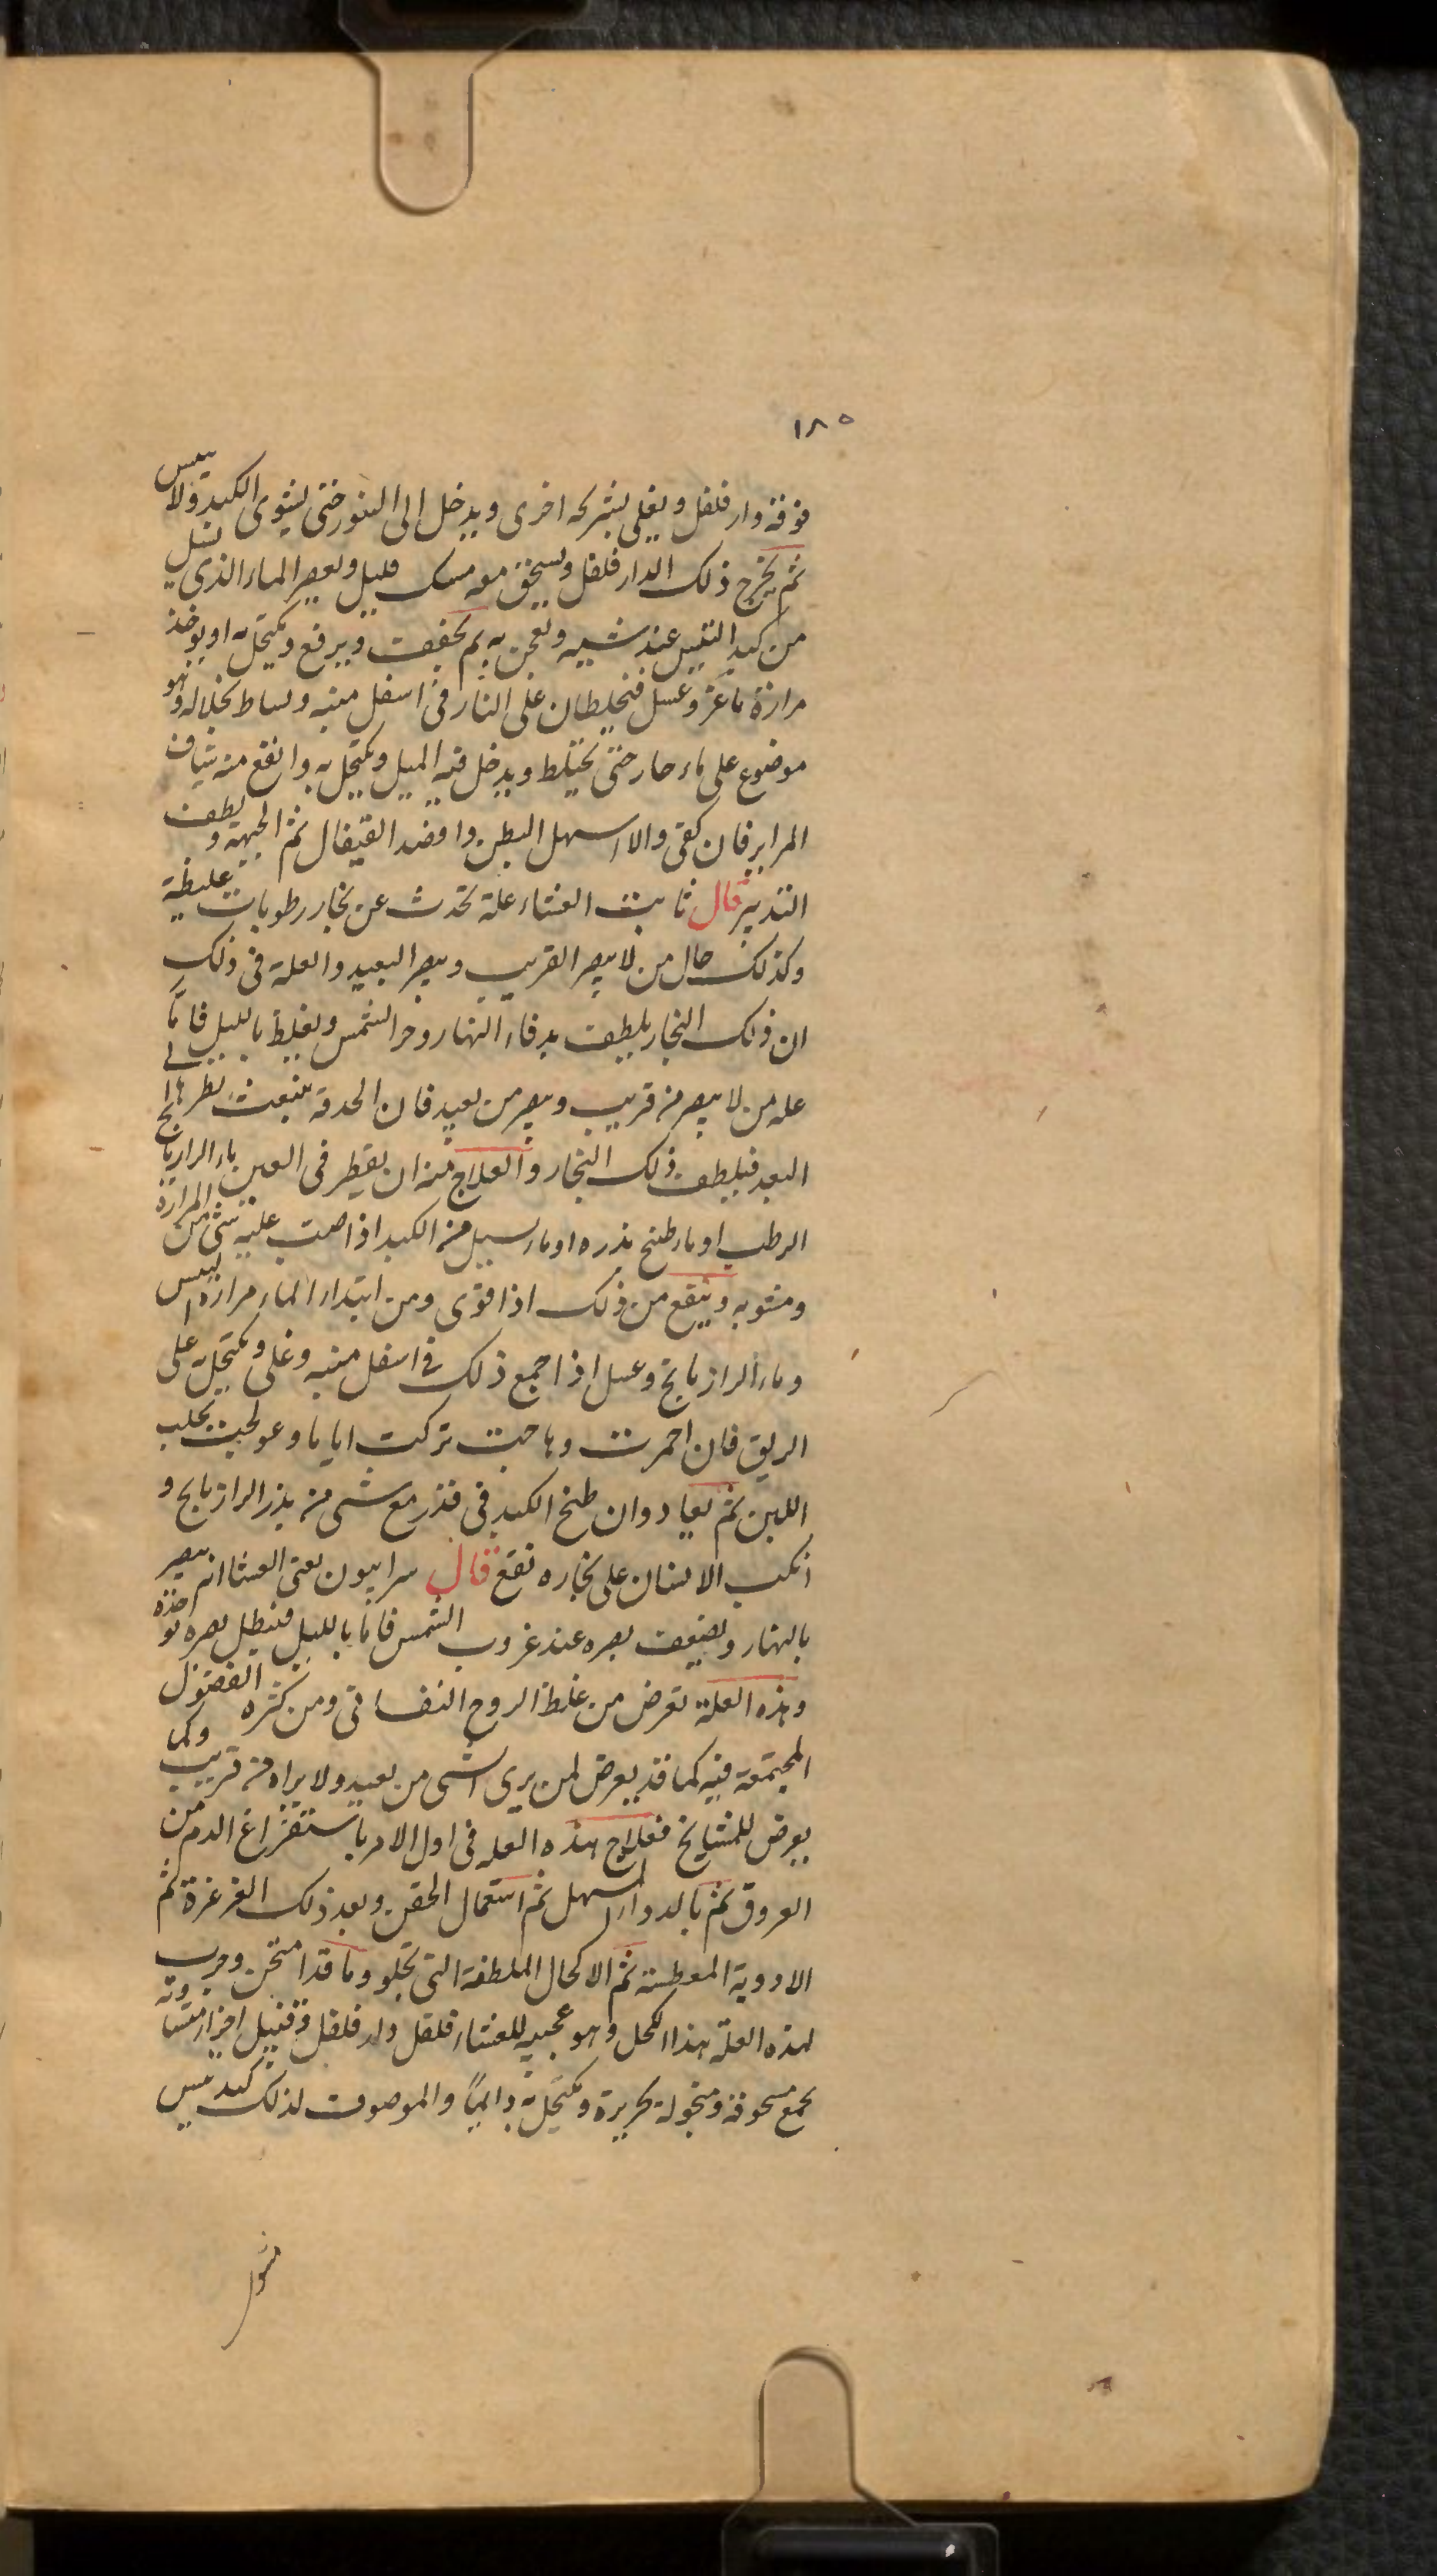 ١٨٥
فوقه دار فلفل ويغلى بشركه اخرى ويدخل الى التنور حتى يشوى الكبد ولا ييبس
ثم يخرج ذلك الدار فلفل ويسحق معه مسك قليل ويعصر الماء الذى يسيل
من كبد التيس عند شيه ويعجن به ثم يجفف ويرفع ويكتحل به او يوخذ
مرارة ماعز وعسل فيخلطان على النار فى اسفل منبه ويساط بخلاله وهو
موضوع على ماء حار حتى يختلط ويدخل فيه الميل ويكتحل به وانفع منه شياف
المراير فان كفى والا اسهل البطن وافصد القيفال ثم الجبهة ولطف
التدبير قال ثابت العشاء علة تحدث عن بخار رطوبات غليظة
وكذلك حال من لا يبصر القريب ويبصر البعيد والعلة فى ذلك
ان ذلك البخار يلطف بدفاء النهار وحر الشمس ويغلظ بالليل فاما
عله من لا يبصر من قريب ويبصر من بعيد فان الحدقة ينبعث نظرها الى
البعد فيلطف ذلك البخار والعلاج منه ان يقطر فى العين ماء الرازيانج
الرطب او ماء طبخ بذره او ماء يسيل من الكبد اذا صب عليه شى من المرارة
ومشويه وينفع من ذلك اذا قوى ومن ابتداء الماء مرارة التيس
وماء الرازيانج وعسل اذا جمع ذلك فى اسفل منبه وغلى ويكتحل به على
الريق فان احمرت وهاجت تركت اياما وعولجت بحلب
اللبن ثم يعاد وان طبخ الكبد فى قدر مع شى من بذر الرازيانج و
انكب الانسان على بخاره نفع قال سرابيون يعنى العشا انه يبصر
بالنهار ويضعف بصره عند غروب الشمس فاما بالليل فيبطل بصره
وهذه العلة تعرض من غلظ الروح النفسانى ومن كثره الفضول
المجتمعة فيه كما قد يعرض لمن يرى الشى من بعيد ولا يراه من قريب وكما
يعرض للمشايخ فعلاج هذه العله فى اول الامر باستفراغ الدم من
العروق ثم بالدواء المسهل ثم استعمال الحقن وبعد ذلك الغرغرة ثم
الادوية المعطسة ثم الاكحال الملطفة التى تجلو وما قد امتحن وجرب
لهذه العلة هذا الكحل وهو عجيب للعشاء فلفل دار فلفل وقنبيل اجزاء متساوية
يجمع مسحوقة ومنخولة بحريرة ويكتحل به دايما والموصوف لذلك كبد تيس